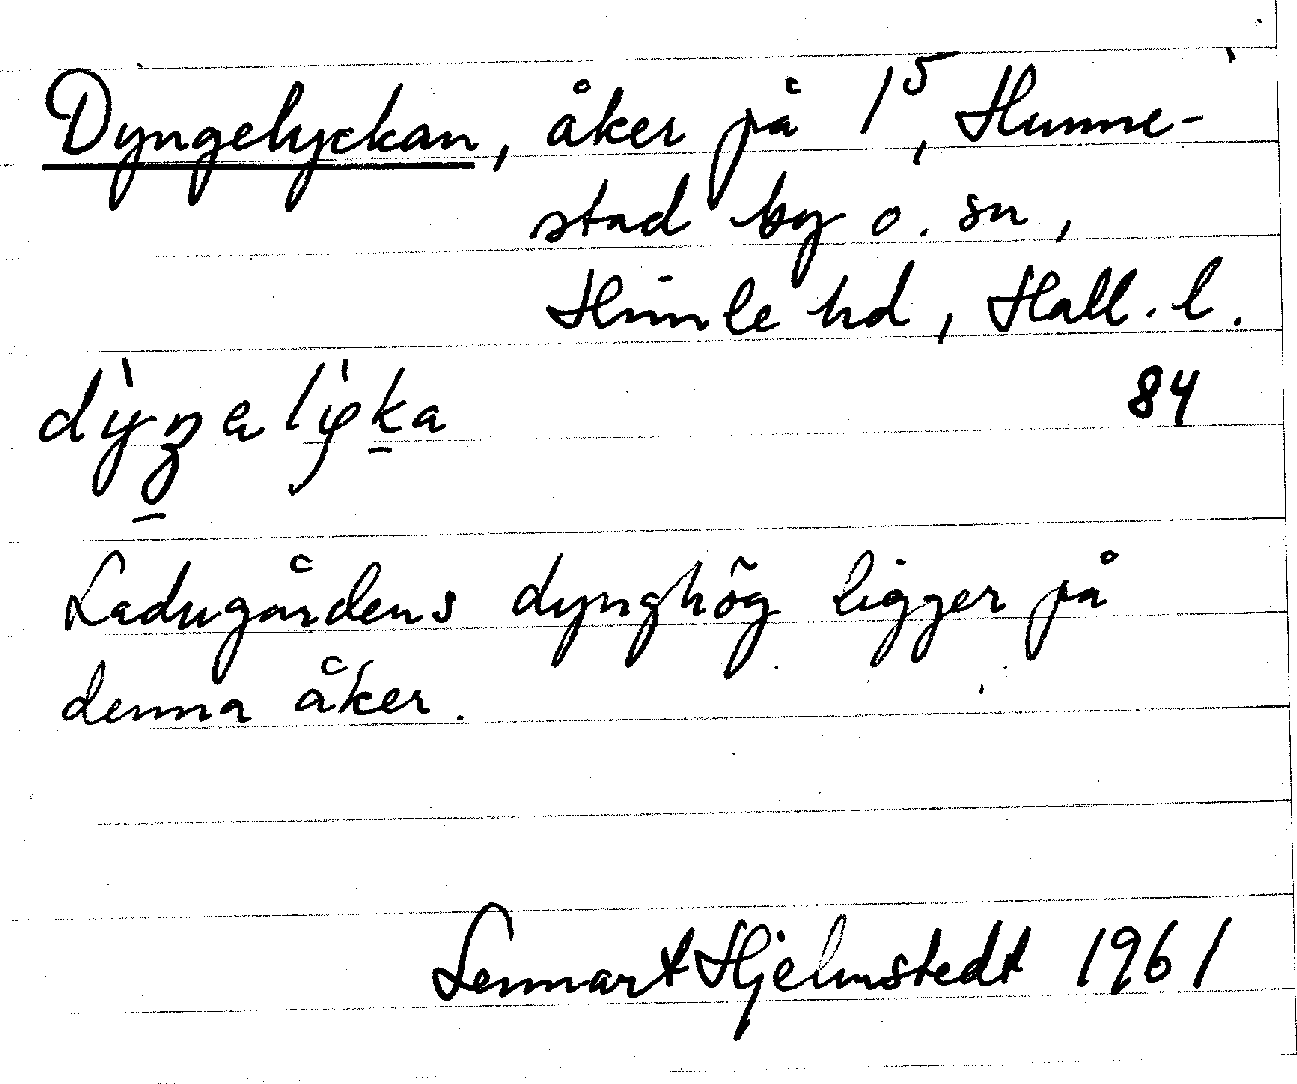 Dyngelyckan, åker på 1⁵, Hunne-
stad by o. sn,
Himle hd, Hall. l.
84
Ladugårdens dynghög ligger på
denna åker.
Lennart Hjelmstedt 1961